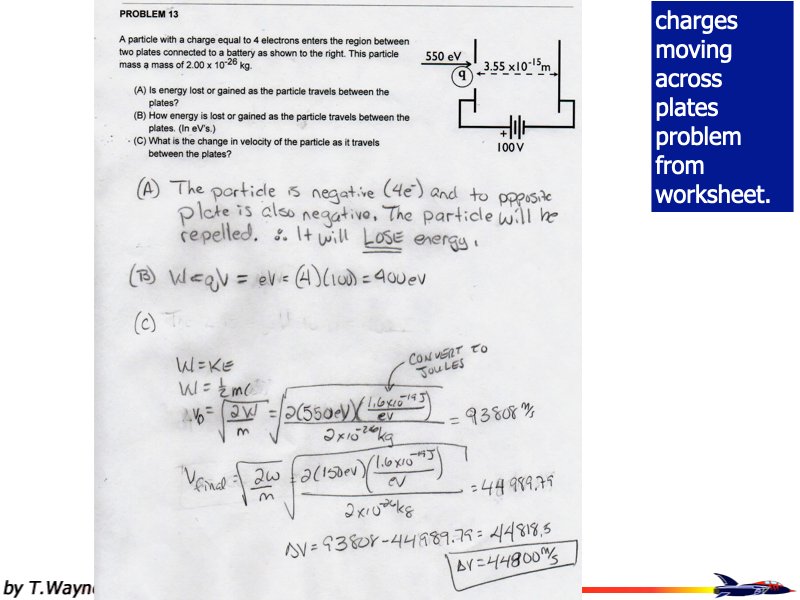 PROBLEM 13
A particle with a charge equal to 4 electrons enters the region between
two plates connected to a battery as shown to the right. This particle
mass a mass of 2.00 x 10⁻²⁶ kg.
(A) Is energy lost or gained as the particle travels between the
plates?
(B) How energy is lost or gained as the particle travels between the
plates. (In eV's.)
(C) What is the change in velocity of the particle as it travels
between the plates?
550 eV
q
3.55 x10⁻¹⁵m
+
100 V
charges
moving
across
plates
problem
from
worksheet.
(A) The particle is negative (4e⁻) and to opposite
plate is also negative. The particle will be
repelled. ∴ It will LOSE energy.
(B) W=qV = eV = (4)(100) = 400eV
(C)
W=KE
CONVERT TO
JOULES
W = ½m
V₀ = √(2W/m) = √(2(550eV)(1.6x10⁻¹⁹J/eV)/2x10⁻²⁶kg) = 93808 m/s
Vfinal = √(2W/m) = √(2(150eV)(1.6x10⁻¹⁹J/eV)/2x10⁻²⁶kg) = 44989.79
ΔV = 93808 - 44989.79 = 44818.5
ΔV = 44800 m/s
by T.Wayne